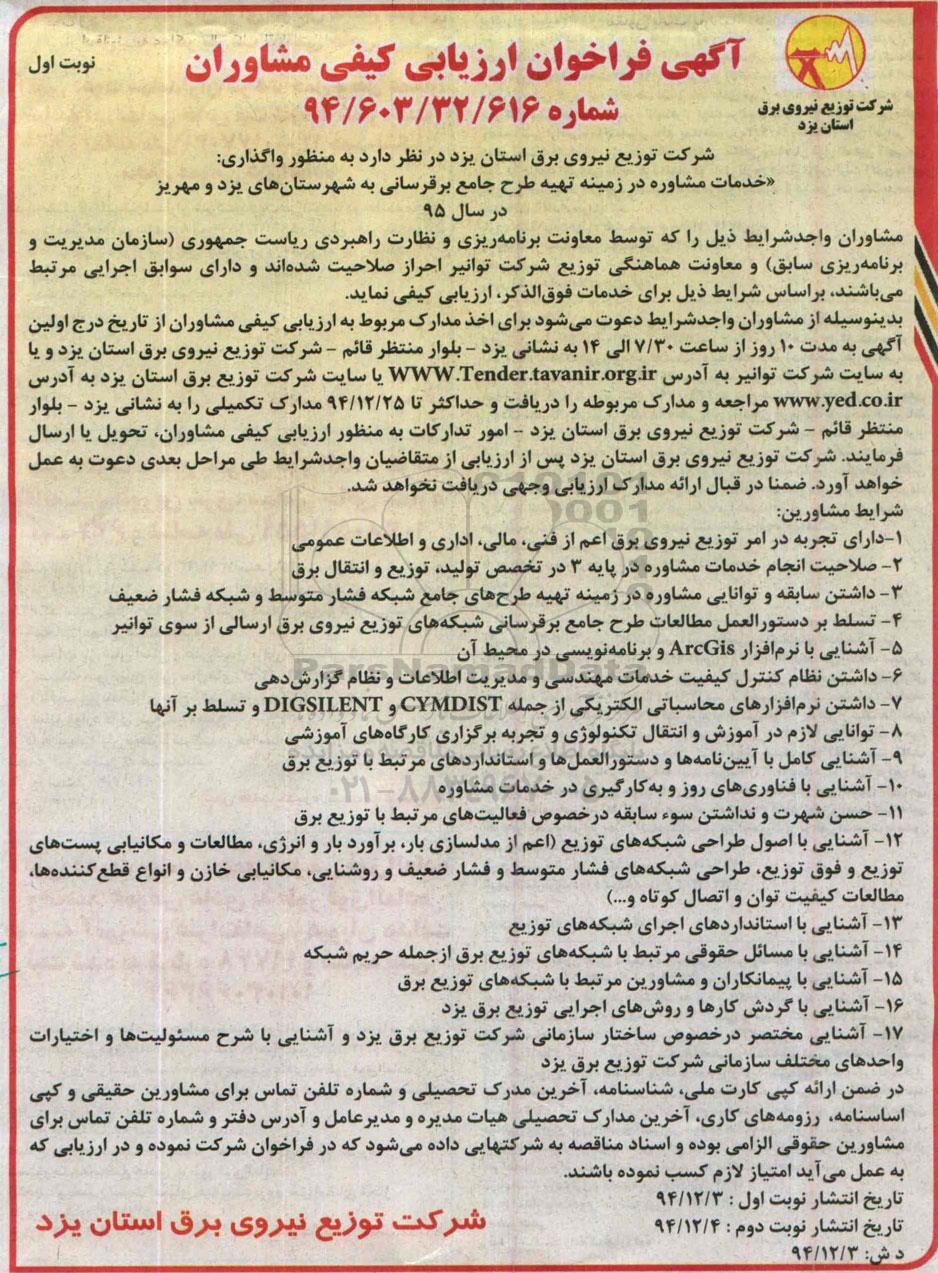 آگهی فراخوان ارزیابی کیفی مشاوران
نوبت اول
شماره ۹۴/۶۰۳/۳۲/۶۱۶
شرکت توزیع نیروی برق
استان یزد
شرکت توزیع نیروی برق استان یزد در نظر دارد به منظور واگذاری:
«خدمات مشاوره در زمینه تهیه طرح جامع برقرسانی به شهرستان‌های یزد و مهریز
در سال ۹۵
مشاوران واجدشرایط ذیل را که توسط معاونت برنامه‌ریزی و نظارت راهبردی ریاست جمهوری (سازمان مدیریت و
برنامه‌ریزی سابق) و معاونت هماهنگی توزیع شرکت توانیر احراز صلاحیت شده‌اند و دارای سوابق اجرایی مرتبط
می‌باشند، براساس شرایط ذیل برای خدمات فوق‌الذکر، ارزیابی کیفی نماید.
بدینوسیله از مشاوران واجدشرایط دعوت می‌شود برای اخذ مدارک مربوط به ارزیابی کیفی مشاوران از تاریخ درج اولین
آگهی به مدت ۱۰ روز از ساعت ۷/۳۰ الی ۱۴ به نشانی یزد - بلوار منتظر قائم - شرکت توزیع نیروی برق استان یزد و یا
به سایت شرکت توانیر به آدرس WWW.Tender.tavanir.org.ir یا سایت شرکت توزیع برق استان یزد به آدرس
www.yed.co.ir مراجعه و مدارک مربوطه را دریافت و حداکثر تا ۹۴/۱۲/۲۵ مدارک تکمیلی را به نشانی یزد - بلوار
منتظر قائم - شرکت توزیع نیروی برق استان یزد - امور تدارکات به منظور ارزیابی کیفی مشاوران، تحویل یا ارسال
فرمایند. شرکت توزیع نیروی برق استان یزد پس از ارزیابی از متقاضیان واجدشرایط طی مراحل بعدی دعوت به عمل
خواهد آورد. ضمنا در قبال ارائه مدارک ارزیابی وجهی دریافت نخواهد شد.
شرایط مشاورین:
۱-دارای تجربه در امر توزیع نیروی برق اعم از فنی، مالی، اداری و اطلاعات عمومی
۲- صلاحیت انجام خدمات مشاوره در پایه ۳ در تخصص تولید، توزیع و انتقال برق
۳- داشتن سابقه و توانایی مشاوره در زمینه تهیه طرح‌های جامع شبکه فشار متوسط و شبکه فشار ضعیف
۴- تسلط بر دستورالعمل مطالعات طرح جامع برقرسانی شبکه‌های توزیع نیروی برق ارسالی از سوی توانیر
۵- آشنایی با نرم‌افزار ArcGis و برنامه‌نویسی در محیط آن
ParsNamadData
۶- داشتن نظام کنترل کیفیت خدمات مهندسی و مدیریت اطلاعات و نظام گزارش‌دهی
۷- داشتن نرم‌افزارهای محاسباتی الکتریکی از جمله CYMDIST و DIGSILENT و تسلط بر آنها
۸- توانایی لازم در آموزش و انتقال تکنولوژی و تجربه برگزاری کارگاه‌های آموزشی
۹- آشنایی کامل با آیین‌نامه‌ها و دستورالعمل‌ها و استانداردهای مرتبط با توزیع برق
۱۰- آشنایی با فناوری‌های روز و به‌کارگیری در خدمات مشاوره
۱۱- حسن شهرت و نداشتن سوء سابقه درخصوص فعالیت‌های مرتبط با توزیع برق
۱۲- آشنایی با اصول طراحی شبکه‌های توزیع (اعم از مدلسازی بار، برآورد بار و انرژی، مطالعات و مکانیابی پست‌های
توزیع و فوق توزیع، طراحی شبکه‌های فشار متوسط و فشار ضعیف و روشنایی، مکانیابی خازن و انواع قطع‌کننده‌ها،
مطالعات کیفیت توان و اتصال کوتاه و...)
۱۳- آشنایی با استانداردهای اجرای شبکه‌های توزیع
۱۴- آشنایی با مسائل حقوقی مرتبط با شبکه‌های توزیع برق ازجمله حریم شبکه
۱۵- آشنایی با پیمانکاران و مشاورین مرتبط با شبکه‌های توزیع برق
۱۶- آشنایی با گردش کارها و روش‌های اجرایی توزیع برق یزد
۱۷- آشنایی مختصر درخصوص ساختار سازمانی شرکت توزیع برق یزد و آشنایی با شرح مسئولیت‌ها و اختیارات
واحدهای مختلف سازمانی شرکت توزیع برق یزد
در ضمن ارائه کپی کارت ملی، شناسنامه، آخرین مدرک تحصیلی و شماره تلفن تماس برای مشاورین حقیقی و کپی
اساسنامه، رزومه‌های کاری، آخرین مدارک تحصیلی هیات مدیره و مدیرعامل و آدرس دفتر و شماره تلفن تماس برای
مشاورین حقوقی الزامی بوده و اسناد مناقصه به شرکتهایی داده می‌شود که در فراخوان شرکت نموده و در ارزیابی که
به عمل می‌آید امتیاز لازم کسب نموده باشند.
تاریخ انتشار نوبت اول : ۹۴/۱۲/۳
تاریخ انتشار نوبت دوم : ۹۴/۱۲/۴
د ش: ۹۴/۱۲/۳
شرکت توزیع نیروی برق استان یزد